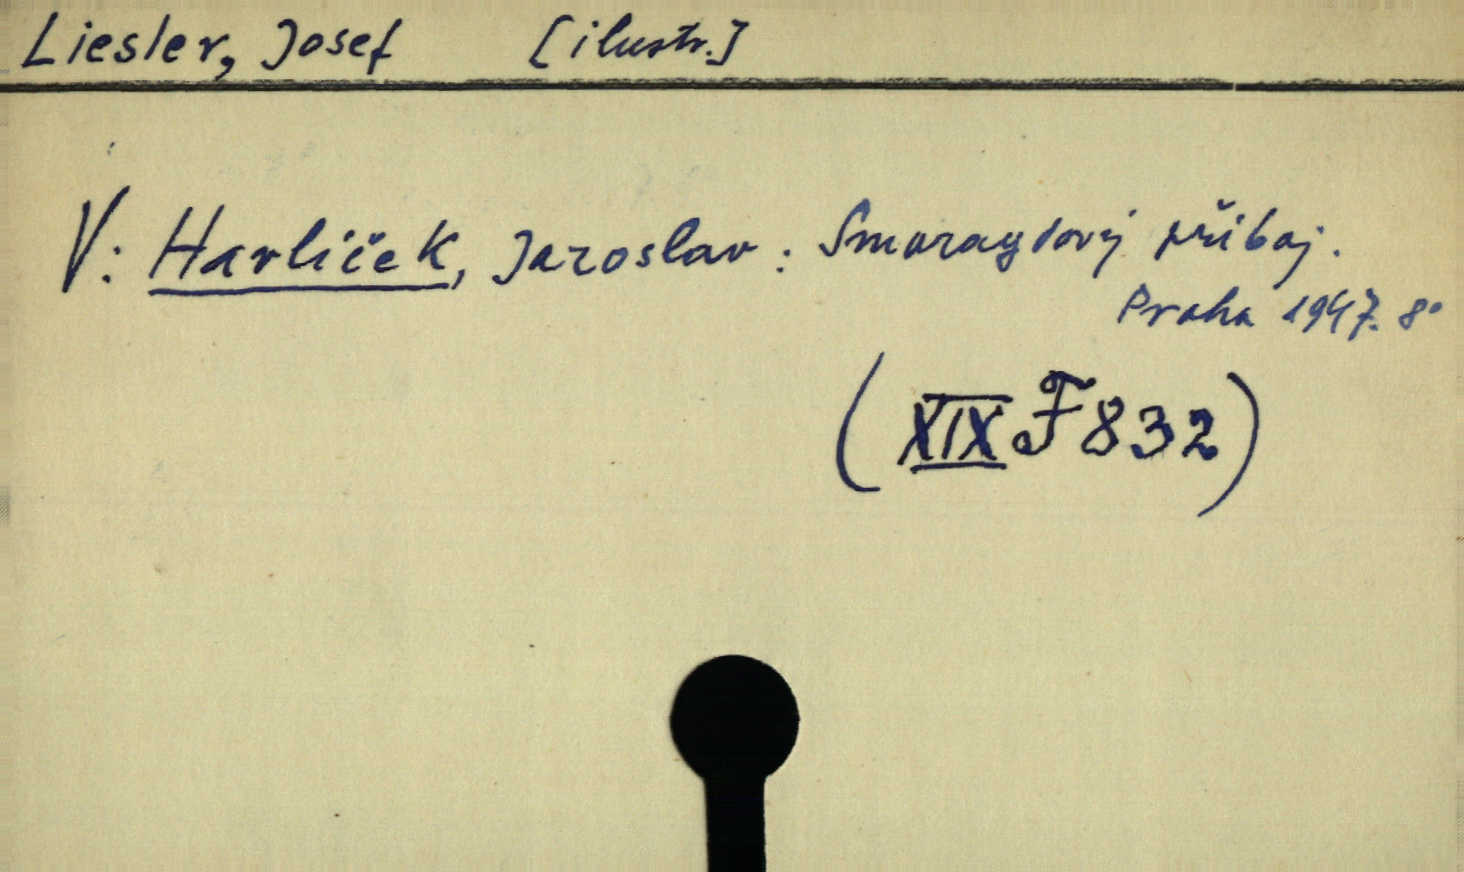 Liesler, Josef [ilustr.]
V: Havlíček, Jaroslav: Smaragdový příboj.
Praha 1947. 8°
(XIX F 832)